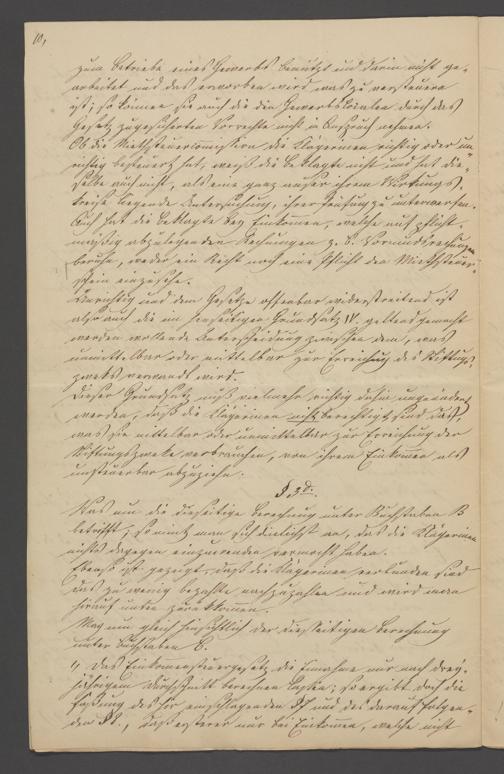 10,
zum Betriebe eines Gewerbs benützt und darin nicht ge-
arbeitet und das erworben wird was zu versteuern
ist; so können sie auch die den Gewerbslocalen durch das
Gesetz zugesicherten Vorrechte nicht in Anspruch nehmen.
Ob die Miethsteuercommission die Klägerinen richtig oder un-
richtig besteuert hat, weiß die Beklagte nicht und hat die-
selbe auch nicht, als eine ganz außer ihrem Wirkungs-
kreise liegende Untersuchung, ihrer Prüfung zu unterwerfen.
Auch hat die Beklagte bey Einkommen, welche auf pflicht-
mäßig abzulegenden Rechnungen z. B. Vormundsrechnungen
beruhe, weder ein Recht noch eine Pflicht den Miethsteuer-
schein einzusehen.
Unrichtig und dem Gesetze offenbar widerstreitend ist
also auch die im jenseitigen Grundsatz IV. geltend gemacht
werden wollende Unterscheidung zwischen dem, was
unmittelbar oder mittelbar zur Erreichung des Stiftungs-
zwecks verwandt wird.
Dieser Grundsatz muß vielmehr richtig dahin umgeändert
werden, daß die Klägerinen nicht berechtigt sind das,
was sie mittelbar oder unmittelbar zur Erreichung der
Stiftungszwecke verbrauchen, von ihrem Einkommen als
unsteuerbar abzuziehen.
§ 3
Was nun die diesseitige Berechnung unter Buchstaben B
betrifft; so nimt man sich dießeits an, daß die Klägerinen
nichts dagegen einzuwenden vermocht haben.
Ebenso ist gezeigt, daß die Klägerinen verbunden sind
das zu wenig bezahlte nachzuzahlen und wird man
hierauf unten zurückkommen.
Was nun gleich hinsichtlich der diesseitigen Berechnung
unter Buchstaben C.
1, Das Einkommensteuergesetz die Einnahme nur nach drey-
jährigem Durchschnitt berechnen lassen; so ergibt doch die
Fassung des hier einschlagenden § 7 und des darauf folgen-
den § 8., daß ersterer nur bei Einkommen, welche nicht